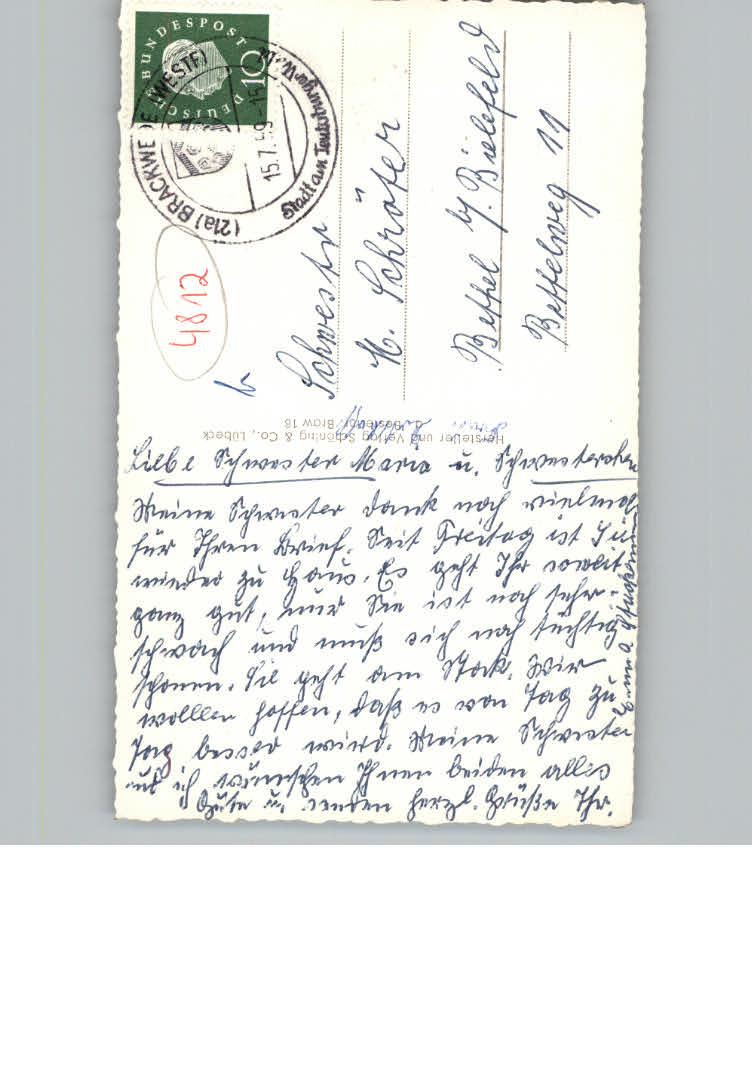 DEUTSCHE BUNDESPOST
10
(21a) BRACKWEDE (WESTF)
15.7.59-15
Stadt am Teutoburger Wald
4812
Schwester
M. Schröter
Bethel b/. Bielefeld
Bethelweg 11
Hersteller und Verlag Schöning & Co., Lübeck
Liebe Schwester Maria u. Schwesterchen
Meine Schwester dankt noch vielmals
für Ihren Brief. Seit Freitag ist Sie
wieder zu Haus. Es geht Ihr soweit
ganz gut, nur Sie ist noch sehr
schwach und muß sich noch tüchtig
schonen. Sie geht am Stock. Wir
wollen hoffen, daß es von Tag zu
Tag besser wird. Meine Schwester
und ich wünschen Ihnen beiden alles
Gute u. senden herzl. Grüße Ihr.